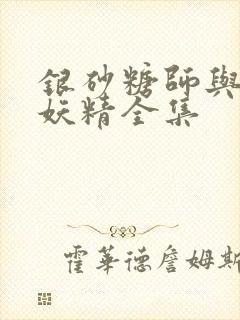 銀砂糖師與
妖精全集
霍華德詹姆斯